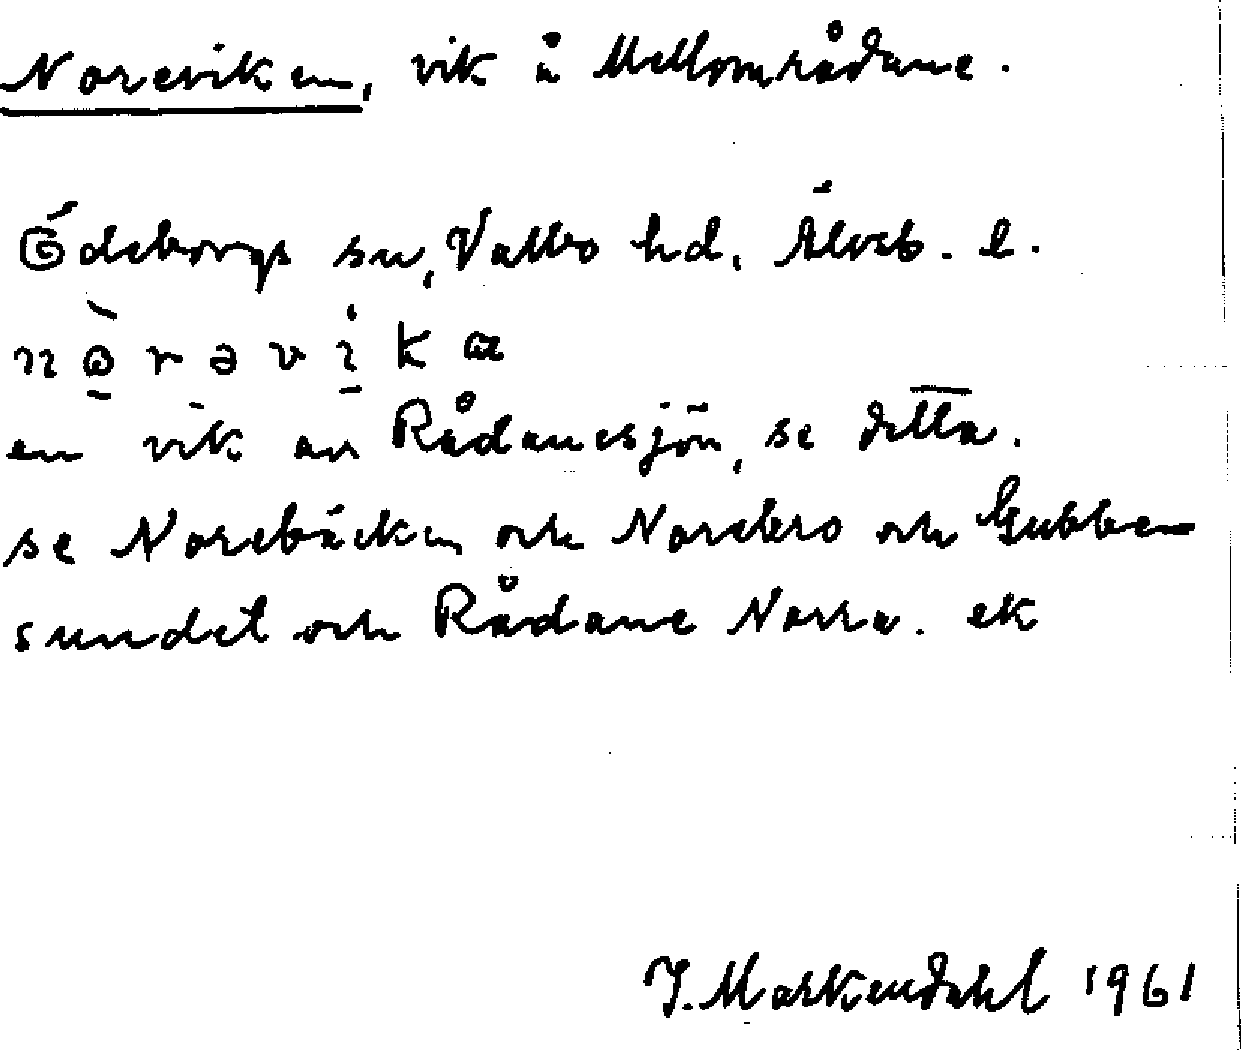 Noreviken, vik å Mellområdane.
Ödeborgs sn, Valbo hd, Älvsb. l.
nòrəvika
en vik av Rådanesjön, se detta.
se Norebäcken och Norebro och Gubben
sundet och Rådane Norra. ek
J. Markendahl 1961